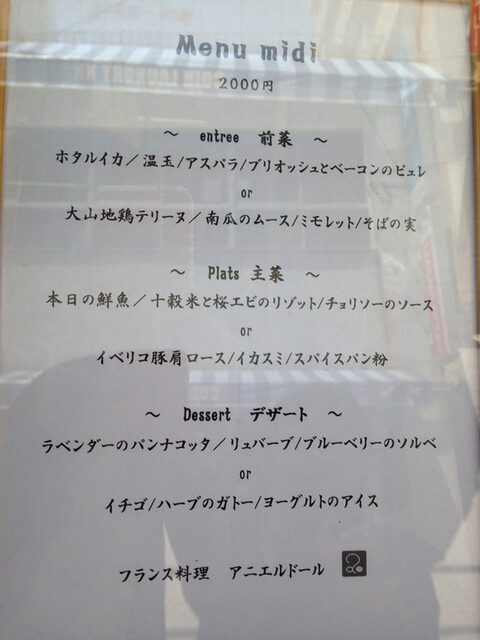 Menu midi
2000円
～ entree 前菜 ～
ホタルイカ／温玉/アスパラ/ブリオッシュとベーコンのピュレ
or
大山地鶏テリーヌ／南瓜のムース/ミモレット/そばの実
～ Plats 主菜 ～
本日の鮮魚／十穀米と桜エビのリゾット/チョリソーのソース
or
イベリコ豚肩ロース/イカスミ/スパイスパン粉
～ Dessert デザート ～
ラベンダーのパンナコッタ／リュバーブ/ブルーベリーのソルベ
or
イチゴ/ハーブのガトー/ヨーグルトのアイス
フランス料理 アニエルドール